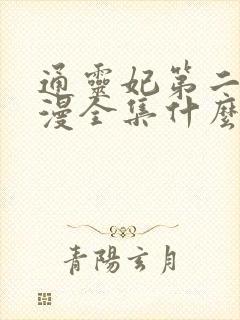 通靈妃第二
漫全集什麼
青陽玄月